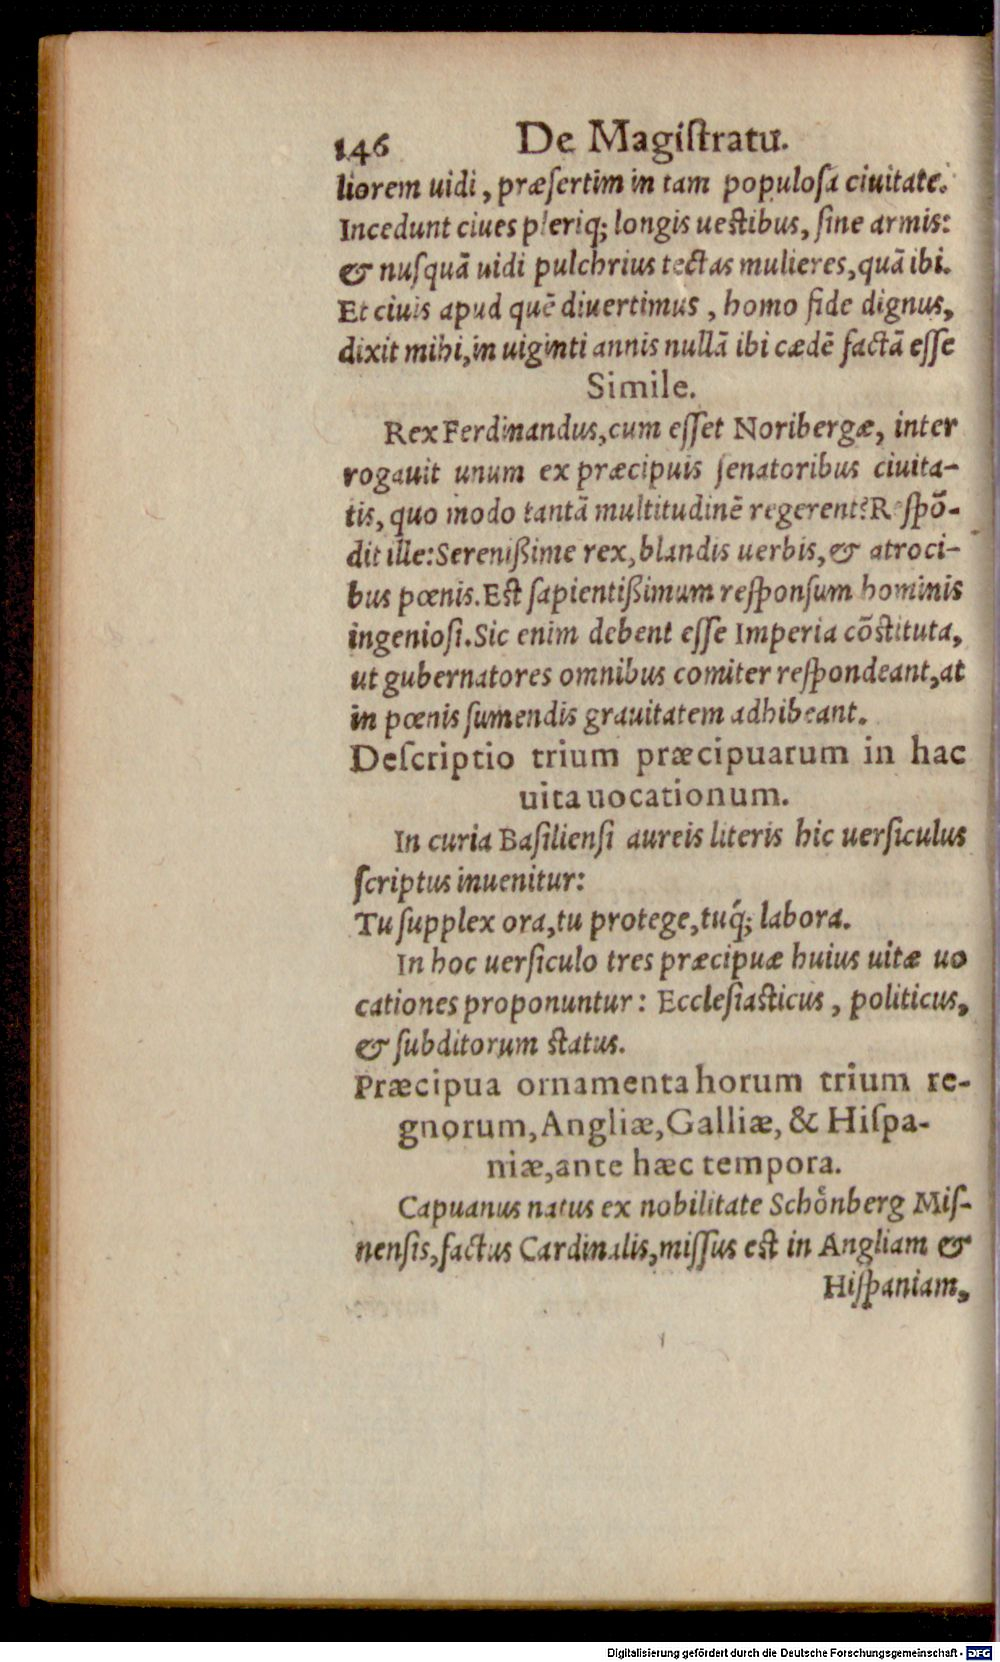 146 De Magiſtratu.
liorem uidi, præſertim in tam populoſa ciuitate.
Incedunt ciues pleriq; longis ueſtibus, ſine armis:
& nuſquā uidi pulchrius tectas mulieres, quā ibi.
Et ciuis apud quē diuertimus, homo fide dignus,
dixit mihi, in uiginti annis nullā ibi cædē factā eſſe
Simile.
Rex Ferdinandus, cum eſſet Noribergæ, inter
rogauit unum ex præcipuis ſenatoribus ciuita-
tis, quo modo tantā multitudinē regerent? Reſpō-
dit ille: Sereniſſime rex, blandis uerbis, & atroci-
bus pœnis. Eſt ſapientiſſimum reſponſum hominis
ingenioſi. Sic enim debent eſſe Imperia cōſtituta,
ut gubernatores omnibus comiter reſpondeant, at
in pœnis ſumendis grauitatem adhibeant.
Deſcriptio trium præcipuarum in hac
uita uocationum.
In curia Baſilienſi aureis literis hic uerſiculus
ſcriptus inuenitur:
Tu ſupplex ora, tu protege, tuq́; labora.
In hoc uerſiculo tres præcipuæ huius uitæ uo
cationes proponuntur: Eccleſiaſticus, politicus,
& ſubditorum ſtatus.
Præcipua ornamenta horum trium re-
gnorum, Angliæ, Galliæ, & Hiſpa-
niæ, ante hæc tempora.
Capuanus natus ex nobilitate Schoͤnberg Miſ-
nenſis, factus Cardinalis, miſſus eſt in Angliam &
Hiſpaniam,
Digitalisierung gefördert durch die Deutsche Forschungsgemeinschaft - DFG